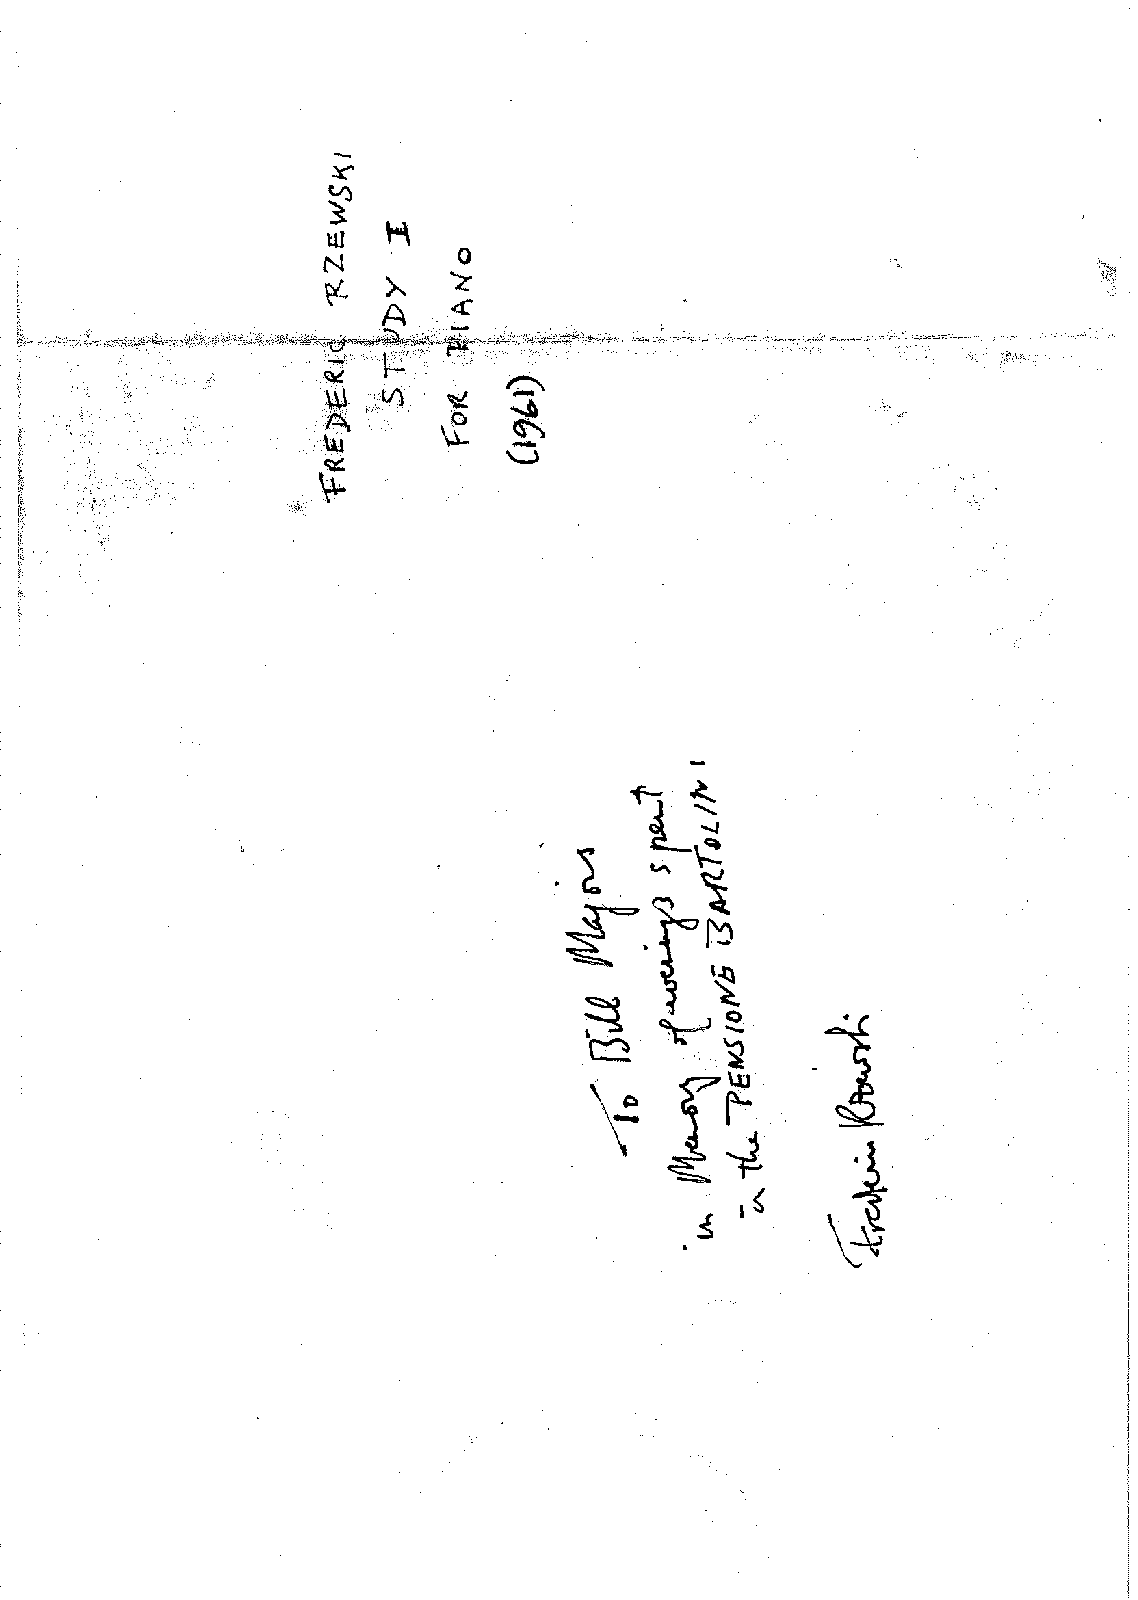 FREDERIC RZEWSKI
STUDY I
FOR PIANO
(1961)
To Bill Majors
in Memory of evenings spent
in the PENSIONE BARTOLINI
Frederic Rzewski